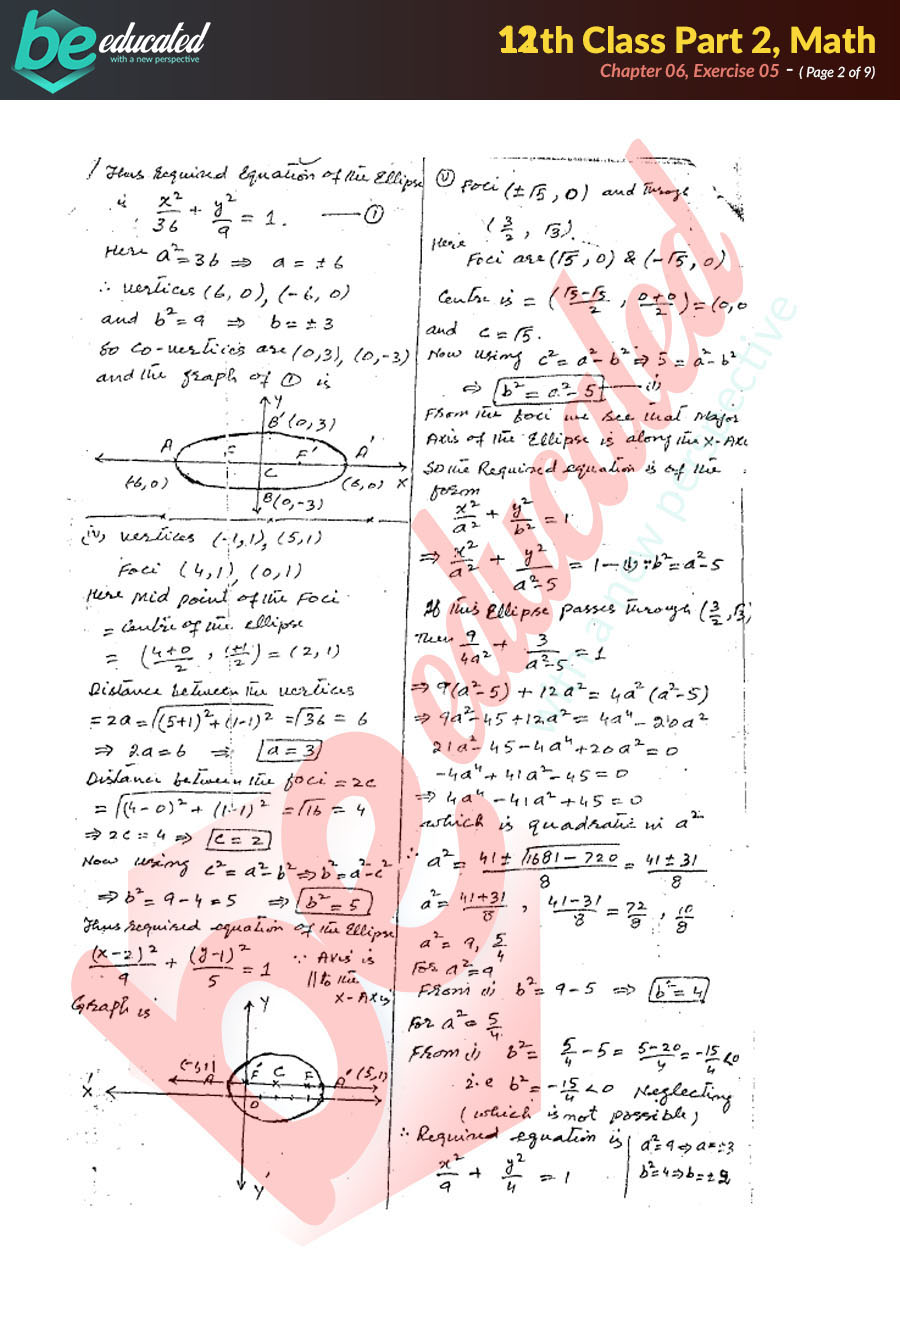 be educated
with a new perspective
12th Class Part 2, Math
Chapter 06, Exercise 05 - ( Page 2 of 9)
Thus required Equation of the Ellipse
is x²/36 + y²/9 = 1. —— ①
Here a² = 36 ⇒ a = ±6
∴ vertices (6, 0), (-6, 0)
and b² = 9 ⇒ b = ±3
So co-vertices are (0,3), (0,-3)
and the graph of ① is
Y
B'(0,3)
A F F' A'
C
(-6,0) (6,0) X
B(0,-3)
(iv) vertices (-1,1), (5,1)
Foci (4,1), (0,1)
Here Mid point of the Foci
= centre of the ellipse
= (4+0/2 , 1+1/2) = (2,1)
Distance between the vertices
= 2a = √(5+1)² + (1-1)² = √36 = 6
⇒ 2a = 6 ⇒ a = 3
Distance between the foci = 2c
= √(4-0)² + (1-1)² = √16 = 4
⇒ 2c = 4 ⇒ c = 2
Now using c² = a² - b² ⇒ b² = a² - c²
⇒ b² = 9 - 4 = 5 ⇒ b² = 5
Thus required equation of the Ellipse
(x-2)²/9 + (y-1)²/5 = 1 ∵ Axis is
|| to the
X-Axis
Graph is
Y
(-1,1) A F' C F A' (5,1)
X'
O
Y'
(v) Foci (±√5, 0) and through
(3/2, √3).
Here
Foci are (√5, 0) & (-√5, 0)
Centre is = (√5-√5/2 , 0+0/2) = (0,0
and c = √5.
Now using c² = a² - b² ⇒ 5 = a² - b²
⇒ b² = a² - 5 —— (i)
From the foci we see that Major
Axis of the Ellipse is along the X-Axi
So the Required equation is of the
form
x²/a² + y²/b² = 1
⇒ x²/a² + y²/a²-5 = 1 — (i) ∵ b² = a² - 5
If this Ellipse passes through (3/2, √3)
Then 9/4a² + 3/a²-5 = 1
⇒ 9(a²-5) + 12a² = 4a²(a²-5)
⇒ 9a² - 45 + 12a² = 4a⁴ - 20a²
21a² - 45 - 4a⁴ + 20a² = 0
-4a⁴ + 41a² - 45 = 0
⇒ 4a⁴ - 41a² + 45 = 0
which is quadratic in a²
∴ a² = 41 ± √1681 - 720/8 = 41 ± 31/8
a² = 41+31/8 , 41-31/8 = 72/8 , 10/8
a² = 9, 5/4
For a² = 9
From (i) b² = 9 - 5 ⇒ b² = 4
For a² = 5/4
From (i) b² = 5/4 - 5 = 5-20/4 = -15/4 < 0
i.e b² = -15/4 < 0 Neglecting
(which is not possible)
∴ Required equation is
x²/9 + y²/4 = 1
a² = 9 ⇒ a = ±3
b² = 4 ⇒ b = ±2
be educated
with a new perspective